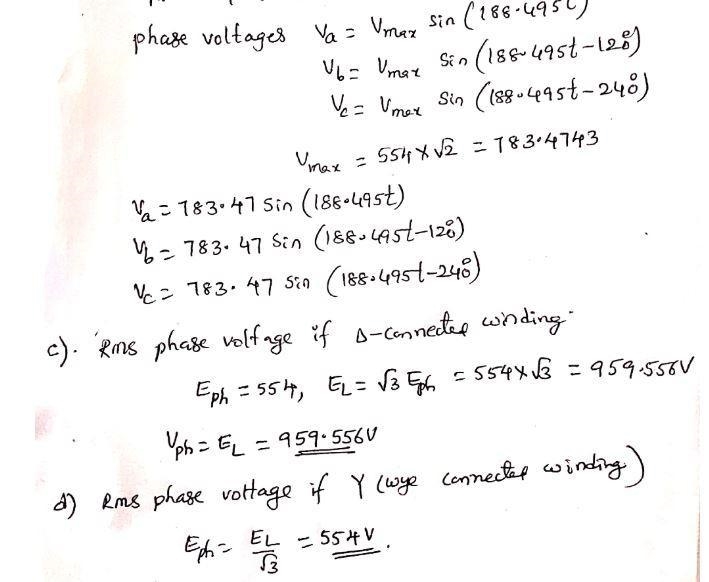 phase voltages Va = Vmax Sin (188.495t)
Vb = Vmax Sin (188.495t-120°)
Vc = Vmax Sin (188.495t-240°)
Vmax = 554 x √2 = 783.4743
Va = 783.47 Sin (188.495t)
Vb = 783.47 Sin (188.495t-120°)
Vc = 783.47 Sin (188.495t-240°)
c). Rms phase voltage if Δ-connected winding.
Eph = 554, EL = √3 Eph = 554x√3 = 959.556V
Vph = EL = 959.556V
d) Rms phase voltage if Y (wye connected winding)
Eph = EL/√3 = 554V.